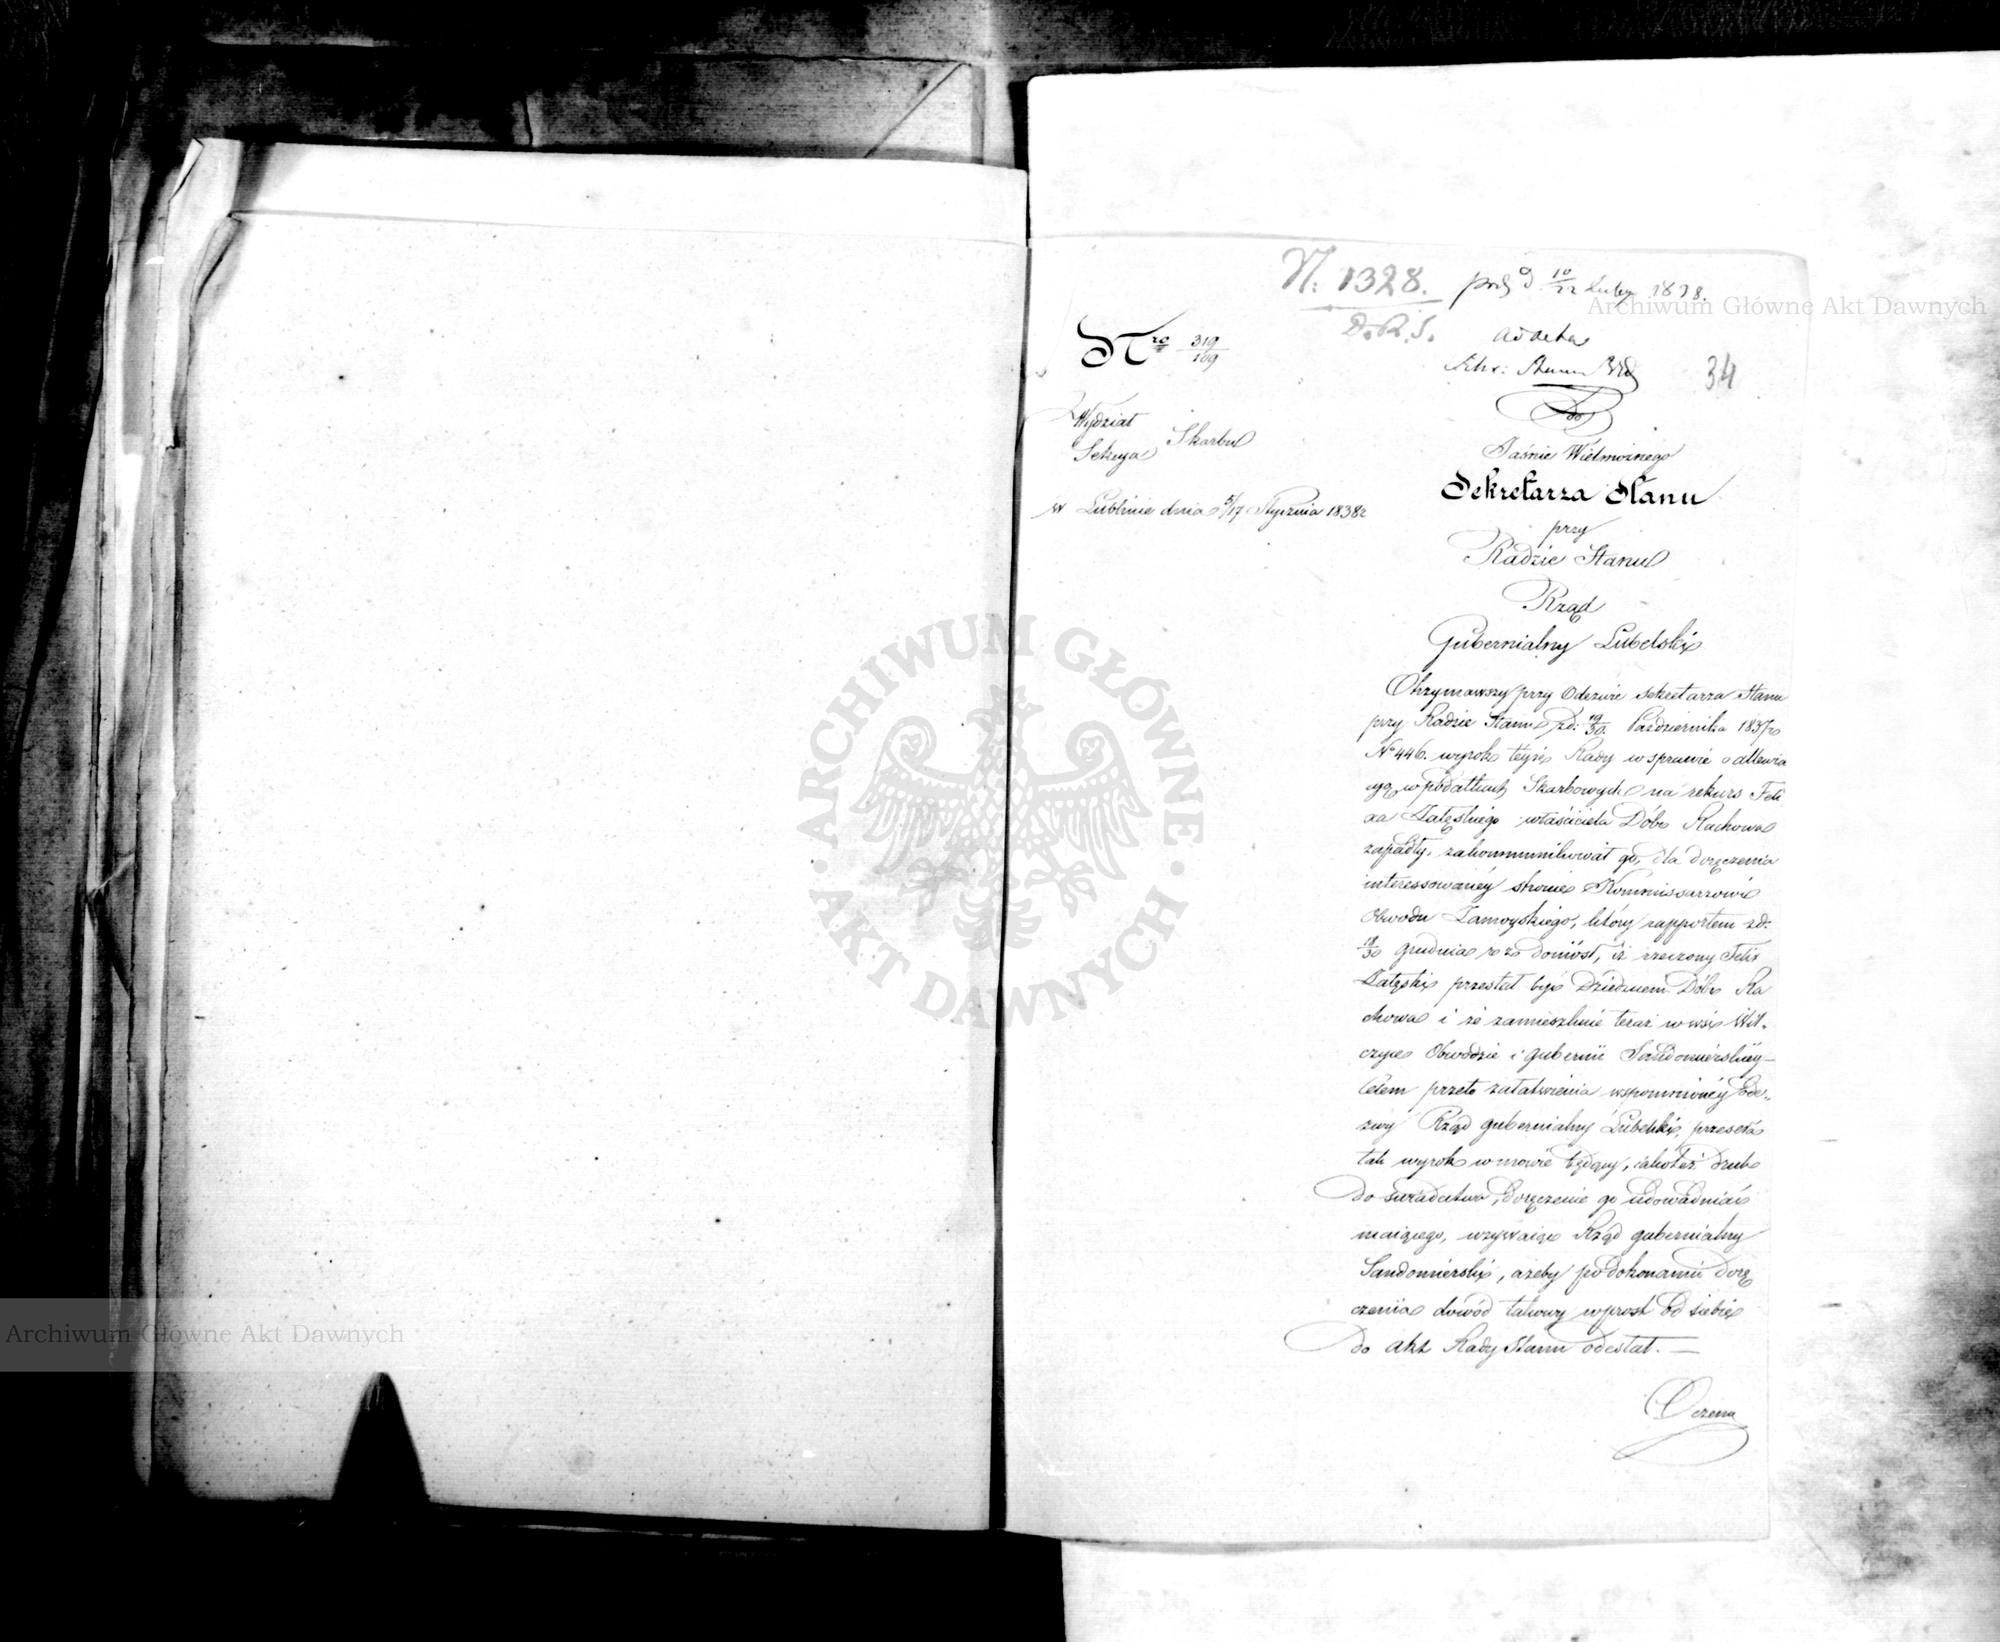 N. 1328.
D. R. S.
10/22 1838.
ad acta
34
Nro 319/109
Wydział
Sekcya Skarbu
w Lublinie dnia 5/17 Stycznia 1838 r
Do
Jaśnie Wielmożnego
Sekretarza Stanu
przy
Radzie Stanu
Rząd
Gubernialny Lubelski
Otrzymawszy przy Odezwie Sekretarza Stanu
przy Radzie Stanu z d: Października 1837 r
No 446. wyrok tejże Rady w sprawie o allewia
cyą w podatkach Skarbowych na rekurs Feli
xa właściciela Dóbr Rachowa
zapadły, zakommunikował go, dla doręczenia
interessowanéy stronie Kommissarzowi
Obwodu Zamoyskiego, który rapportem z d:
18/30 grudnia r z doniósł, iż rzeczony Felix
przestał być Dziedzicem Dóbr Ra
chowa i że zamieszkuie teraz w wsi Wil-
czyce Obwodzie i gubernii Sandomierskiey –
Celem przeto załatwienia wspomnionéy Ode-
zwy Rząd gubernialny Lubelski, przeseła
tak wyrok w mowie będący, iakoteż druk
do świadectwa, doręczenie go udowadniać
maiącego, wzywaiąc Rząd gubernialny
Sandomierski, ażeby po dokonaniu dorę
czenia dowód takowy wprost od siebie
do akt Rady Stanu odesłał. —
Archiwum Główne Akt Dawnych
ARCHIWUM GŁÓWNE · AKT DAWNYCH ·
Archiwum Główne Akt Dawnych